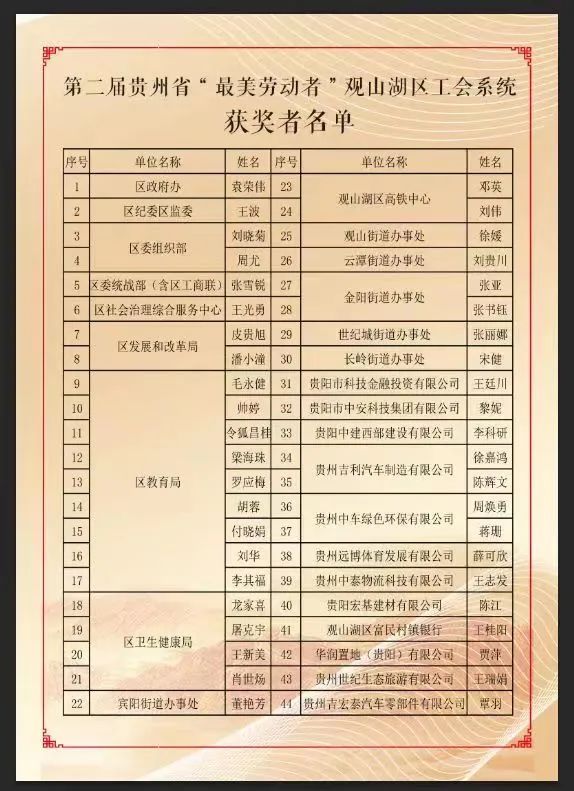 第二届贵州省“最美劳动者”观山湖区工会系统
获奖者名单
序号 单位名称 姓名 序号 单位名称 姓名
1 区政府办 袁荣伟 23 观山湖区高铁中心 邓英
2 区纪委区监委 王波 24 刘伟
3 区委组织部 刘晓菊 25 观山街道办事处 徐媛
4 周尤 26 云潭街道办事处 刘贵川
5 区委统战部（含区工商联） 张雪锐 27 金阳街道办事处 张亚
6 区社会治理综合服务中心 王光勇 28 张书钰
7 区发展和改革局 皮贵旭 29 世纪城街道办事处 张丽娜
8 潘小潼 30 长岭街道办事处 宋健
9 区教育局 毛永健 31 贵阳市科技金融投资有限公司 王廷川
10 帅婷 32 贵阳市中安科技集团有限公司 黎妮
11 令狐昌桂 33 贵阳中建西部建设有限公司 李科研
12 梁海珠 34 贵州吉利汽车制造有限公司 徐嘉鸿
13 罗应梅 35 陈辉文
14 胡蓉 36 贵州中车绿色环保有限公司 周焕勇
15 付晓娟 37 蒋珊
16 刘华 38 贵州远博体育发展有限公司 薛可欣
17 李其福 39 贵州中泰物流科技有限公司 王志发
18 区卫生健康局 龙家喜 40 贵阳宏基建材有限公司 陈江
19 屠克宇 41 观山湖区富民村镇银行 王桂阳
20 王新美 42 华润置地（贵阳）有限公司 贾萍
21 肖世炀 43 贵州世纪生态旅游有限公司 王瑞娟
22 宾阳街道办事处 董艳芳 44 贵州吉宏泰汽车零部件有限公司 覃羽